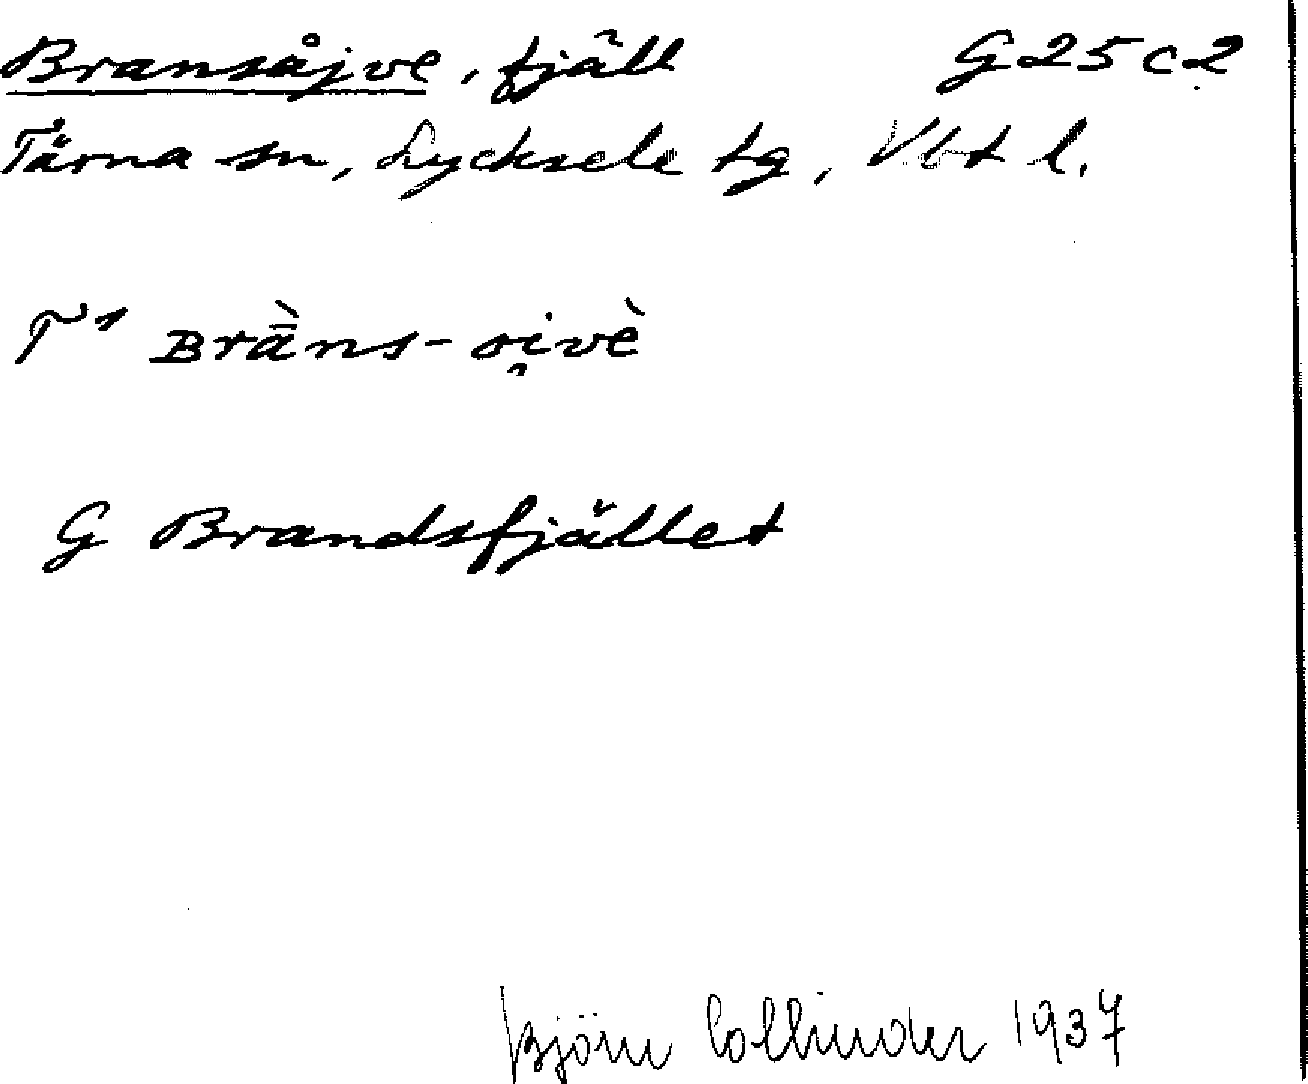 Bransåjve, fjäll G25c2
Tärna sn, Lycksele tg, Vbt l.
T¹ Brā̀ns-oi̯vè
G Brandsfjället
Björn Collinder 1937